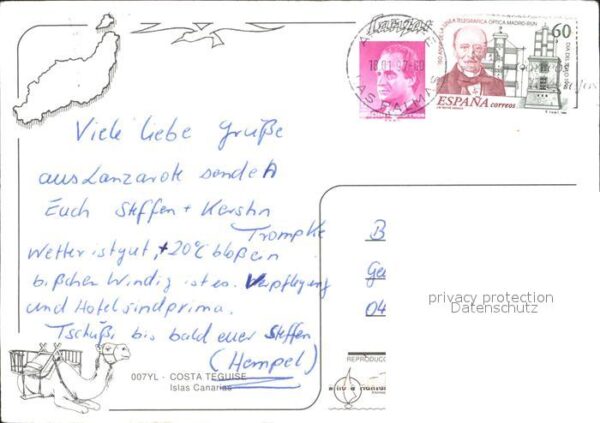 18.01.97-60
LAS PALMAS
150 AÑOS DE LA LINEA TELEGRAFICA OPTICA MADRID-IRUN
60
DIA DEL SELLO
ESPAÑA correos
Viele liebe Grüße
aus Lanzarote sendet
Euch Steffen + Kerstin
Trompke
Wetter ist gut, +20°C bloß ein
bißchen Windig ist es. Verpflegung
und Hotel sind prima.
Tschüß, bis bald euer Steffen
(Hempel)
B
Ge
04
privacy protection
Datenschutz
REPRODUC
007YL - COSTA TEGUISE
Islas Canarias